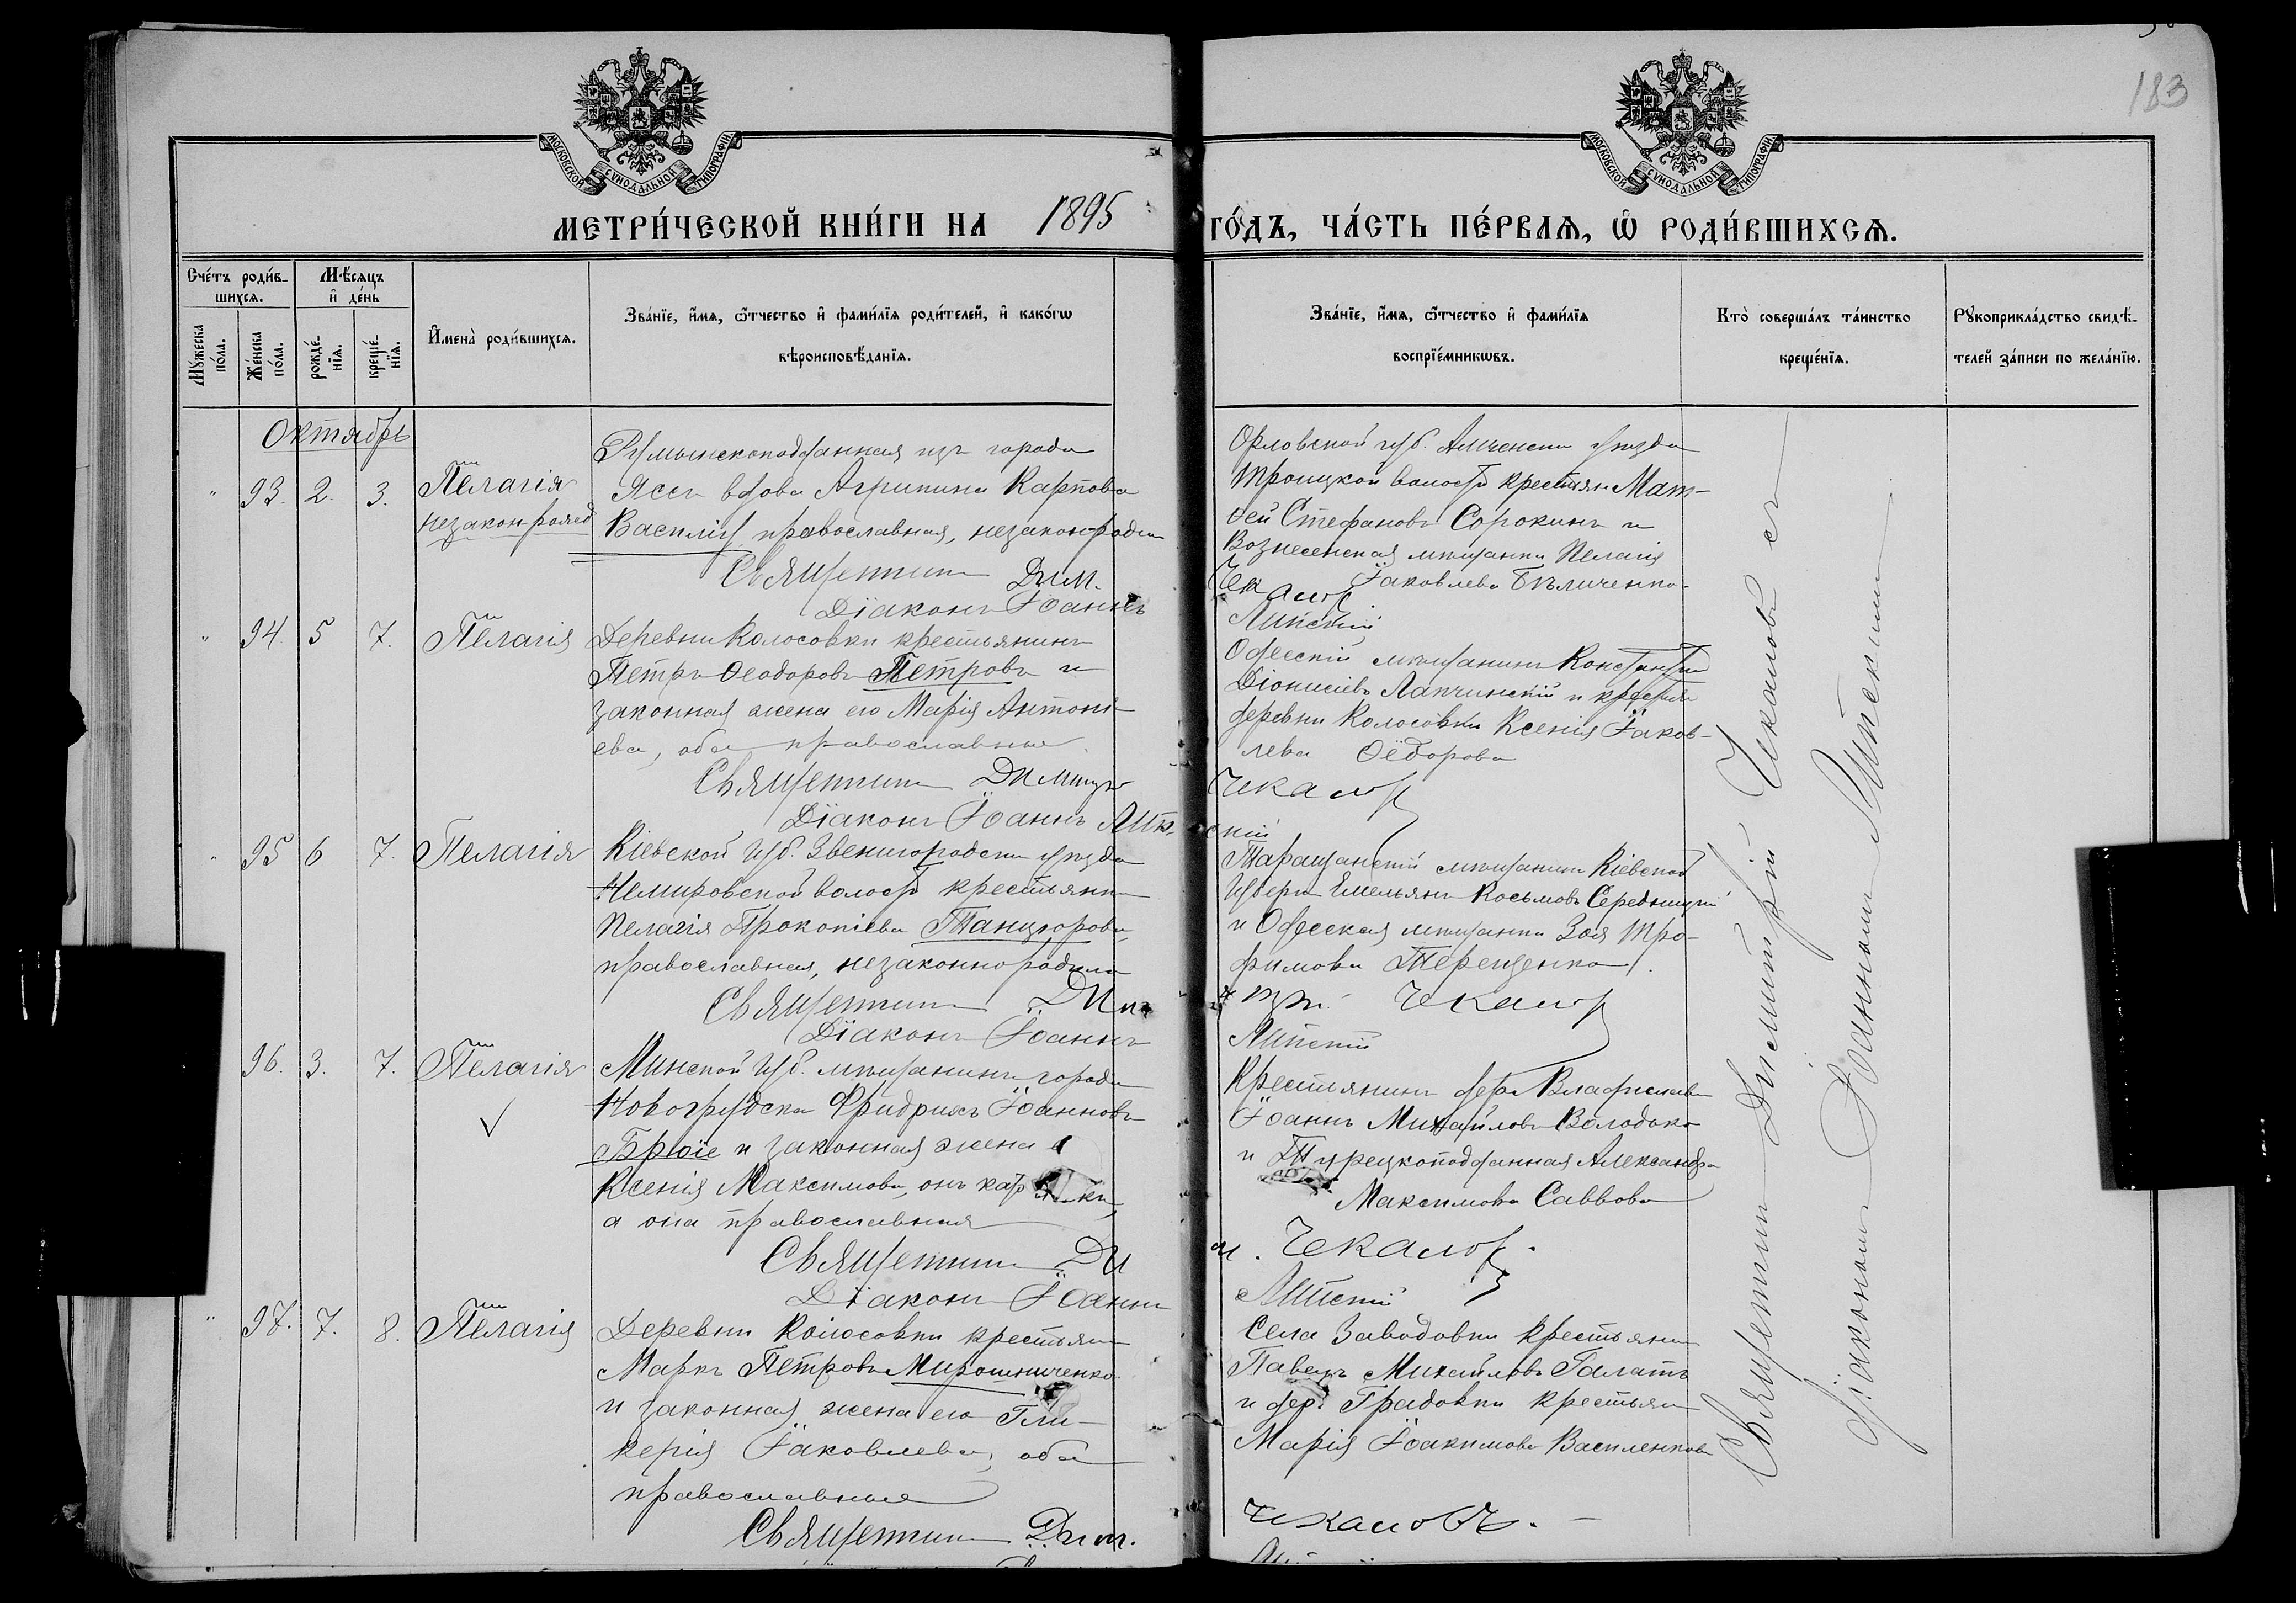 183
МОСКОВСКОЙ СѴНОДАЛЬНОЙ ТИПОГРАФІИ
МОСКОВСКОЙ СѴНОДАЛЬНОЙ ТИПОГРАФІИ
МЕТРИ́ЧЕСКОЙ КНИ́ГИ НА 1895 ГО́ДЪ, ЧА́СТЬ ПЕ́РВАѦ, Ѡ РОДИ́ВШИХСѦ.
Сче́тъ роди́в-
шихсѧ.
Мѣ́сяцъ
и҆ де́нь
Мꙋ́жеска
по́ла.
Же́нска
по́ла.
рожде́-
нїѧ.
креще́-
нїѧ.
И҆мена̀ роди́вшихсѧ.
Зва́нїе, и҆́мѧ, ѻ҆́тчество и҆ фами́лїѧ роди́телей, и҆ како́гѡ
вѣроисповѣ́данїѧ.
Зва́нїе, и҆́мѧ, ѻ҆́тчество и҆ фами́лїѧ
воспрїе́мникѡвъ.
Кто̀ соверша́лъ та́инство
креще́нїѧ.
Рꙋкоприкла́дство свидѣ́-
телей за́писи по жела́нїю.
Октябрь
" 93. 2. 3. Пелагія
незакон-рожд
Румынскоподданная изъ города
Яссъ вдова Агрипина Карпова
Василіу, православная, незаконорожден
Священникъ Дим.
Діаконъ Іоаннъ
Орловской губ. уѣзда
Троицкой волости крестьян. Мат-
ѳей Стефановъ Сорокинъ и
Вознесенская мѣщанка Пелагія
Іаковлева Бѣличенко
Чекаловъ
Липскій
" 94. 5 7. Пелагія
Деревни Колосовки крестьянинъ
Петръ Ѳеодоровъ Петровъ и
законная жена его Марія Антоні-
ева, оба православные.
Священникъ Димитр
Діаконъ Іоаннъ Липскій
Одесскій мѣщанинъ Константин
Діонисіевъ Лапчинскій и крестьян
деревни Колосовки Ксенія Іаков-
лева Ѳедорова
Чекаловъ
" 95 6 7. Пелагія
Кіевской губ. Звенигородска уѣзда
Немировской волости крестьянка
Пелагія Прокопіева Танцюрова,
православная, незаконнорожден
Священникъ Дим
Діаконъ Іоаннъ
Таращанскій мѣщанинъ Кіевской
губерн Емельянъ Косьмовъ Середницкій
и Одесская мѣщанка Зоя Тро-
фимова Терещенко.
Чекаловъ
Липскій
96. 3. 7. Пелагія
Минской губ. мѣщанинъ города
Новогрудска Фридрихъ Іоанновъ
Брюіе и законная жена
Ксенія Максимова, онъ
а она православная
Священникъ Ди
Діаконъ Іоаннъ
Крестьянинъ дер. Владиславк
Іоаннъ Михайловъ Володько
и Турецкоподданная Александра
Максимова Саввова
м. Чекаловъ.
Липскій
" 97. 7. 8. Пелагія
Деревни Колосовки крестьян
Маркъ Петровъ Мирошниченко
и законная жена его Гли-
керія Іаковлева, оба
православные
Священникъ Дим.
Села Заводовки крестьянин
Павелъ Михайловъ Галатъ
и дер. Градовки крестьян
Марія Іоакимова Василенкова
Чекаловъ.
Священникъ Димитрій Чекаловъ съ
діакономъ Іоанномъ Липскимъ